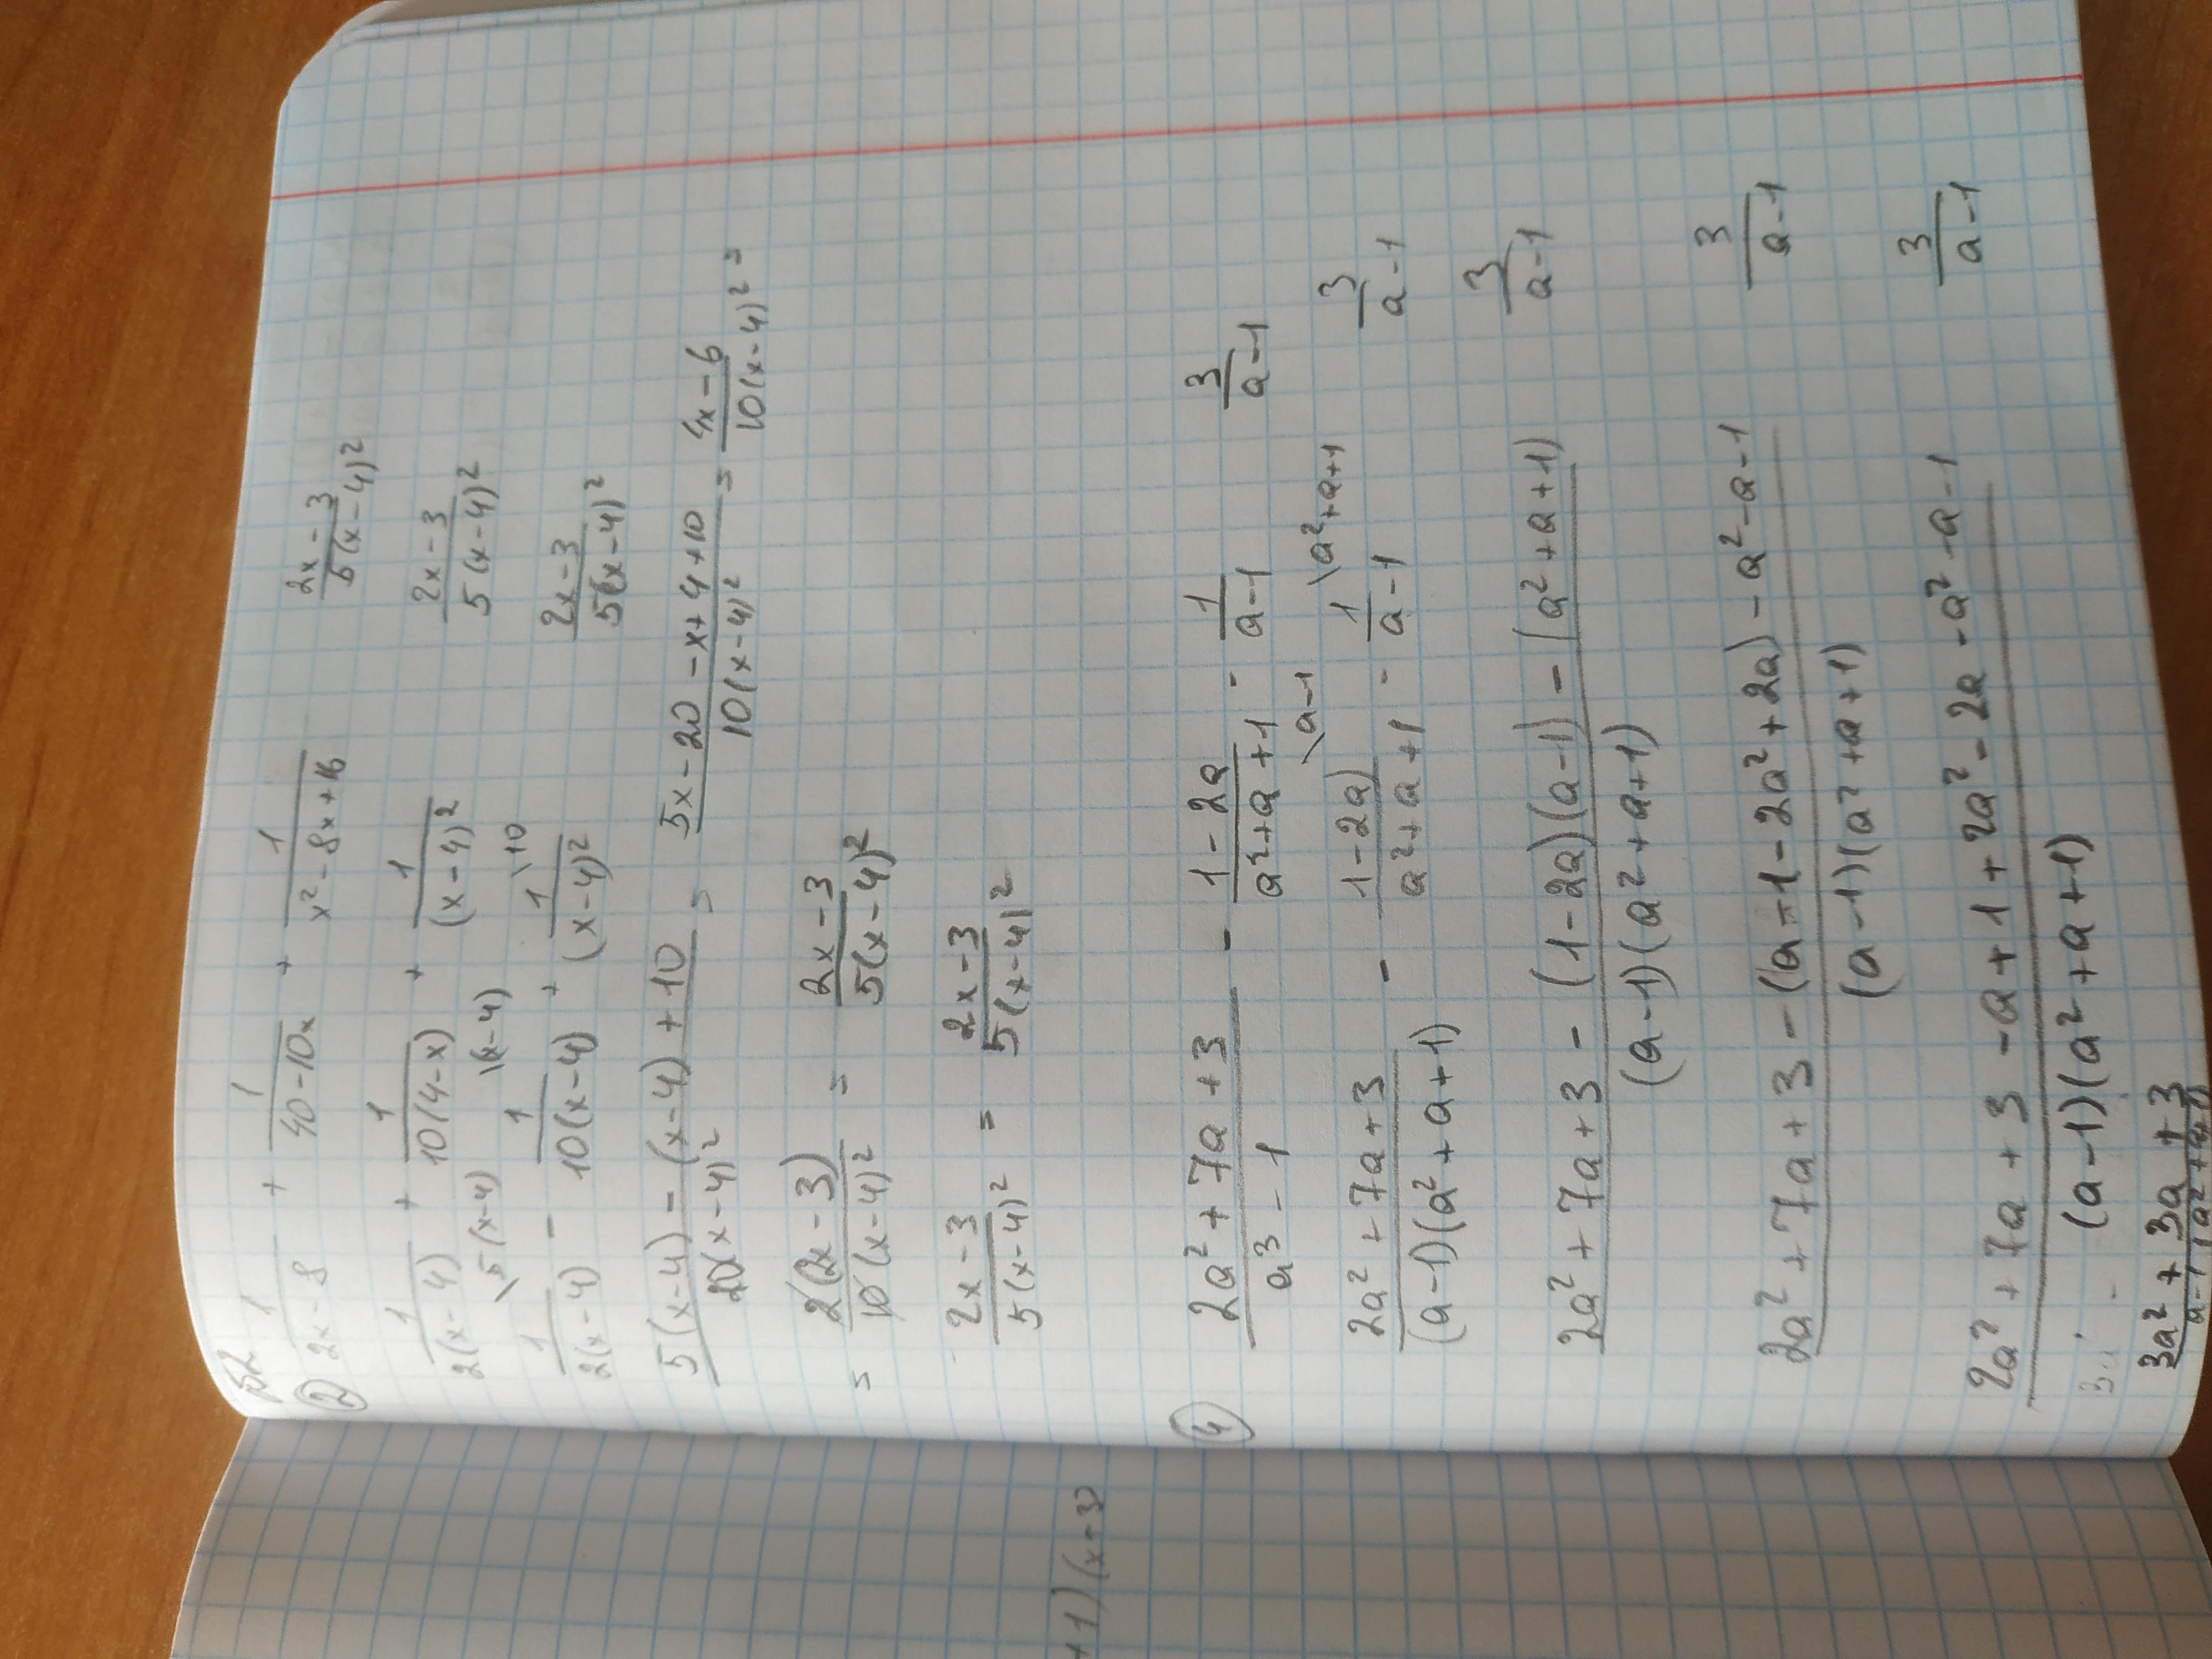 №2
② 1/(2x-8) + 1/(40-10x) + 1/(x²-8x+16)    (2x-3)/(5(x-4)²)
1/(2(x-4)) + 1/(10(4-x)) + 1/(x-4)²    (2x-3)/(5(x-4)²)
\5(x-4) \(x-4) \10
1/(2(x-4)) - 1/(10(x-4)) + 1/(x-4)²    (2x-3)/(5(x-4)²)
(5(x-4)-(x-4)+10)/(20(x-4)²) = (5x-20-x+4+10)/(10(x-4)²) = (4x-6)/(10(x-4)²) =
= (2(2x-3))/(10(x-4)²) = (2x-3)/(5(x-4)²)
(2x-3)/(5(x-4)²) = (2x-3)/(5(x-4)²)
④ (2a²+7a+3)/(a³-1) - (1-2a)/(a²+a+1) - 1/(a-1)    3/(a-1)
\a-1 \a²+a+1
(2a²+7a+3)/((a-1)(a²+a+1)) - (1-2a)/(a²+a+1) - 1/(a-1)    3/(a-1)
(2a²+7a+3-(1-2a)(a-1)-(a²+a+1))/((a-1)(a²+a+1))    3/(a-1)
(2a²+7a+3-(a-1-2a²+2a)-a²-a-1)/((a-1)(a²+a+1))    3/(a-1)
(2a²+7a+3-a+1+2a²-2a-a²-a-1)/((a-1)(a²+a+1))    3/(a-1)
3a²+3a+3
+1)(x+3)